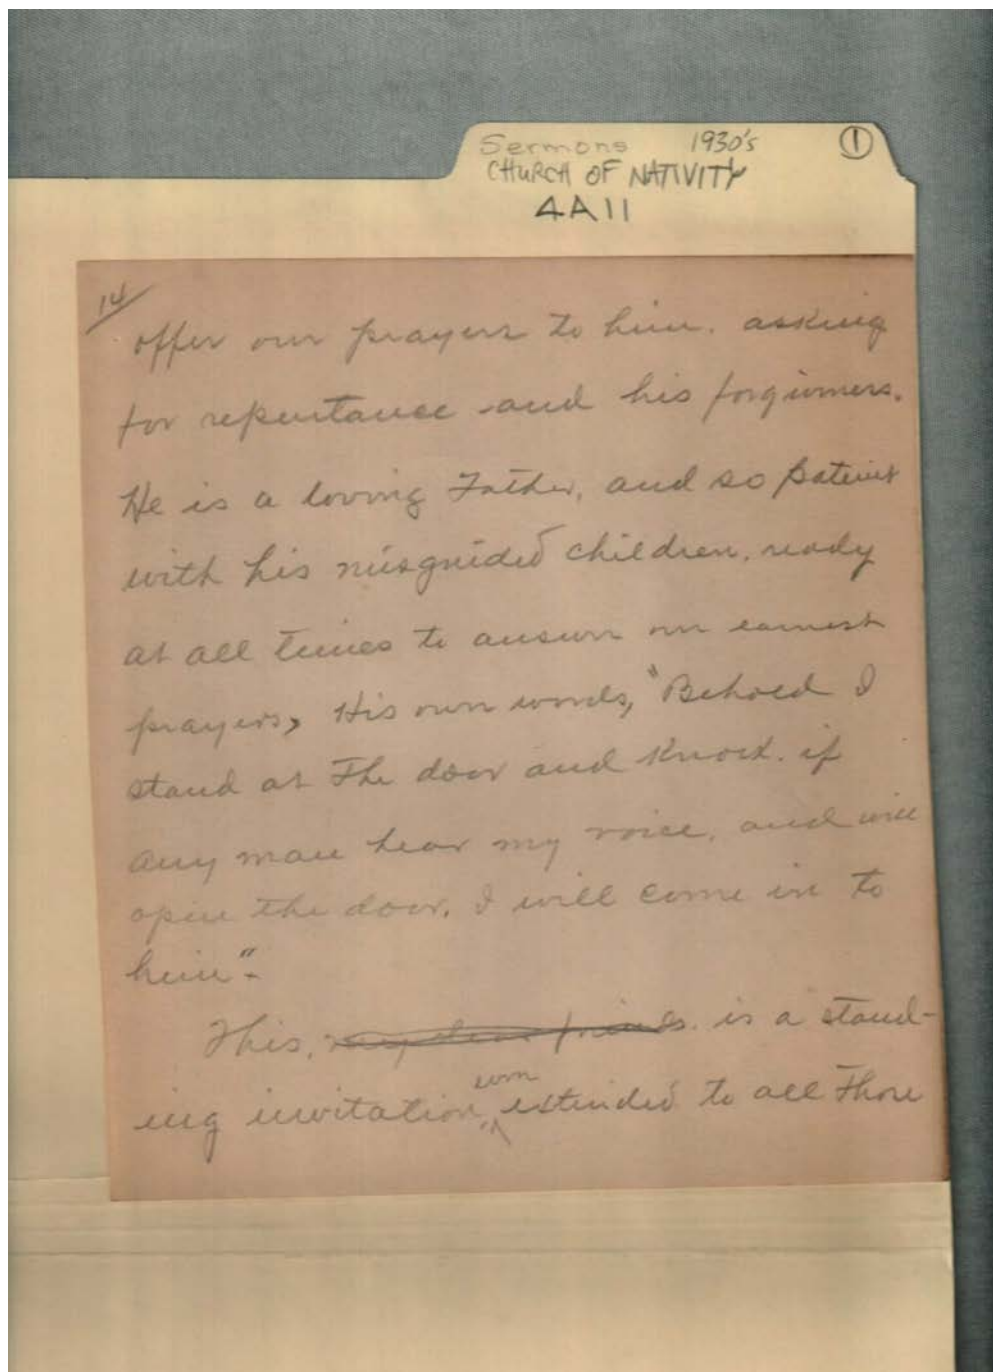 Sermons 1930's ①
CHURCH OF NATIVITY
4A11
14/
offer our prayers to him. asking
for repentance and his forgivness.
He is a loving Father, and so patient
with his misguided children, ready
at all times to answer our earnest
prayers, His own words, "Behold I
stand at The door and Knock. if
any man hear my voice, and will
open the door, I will come in to
him".
This, my dear friends. is a stand-
ing invitation, extended to all Those